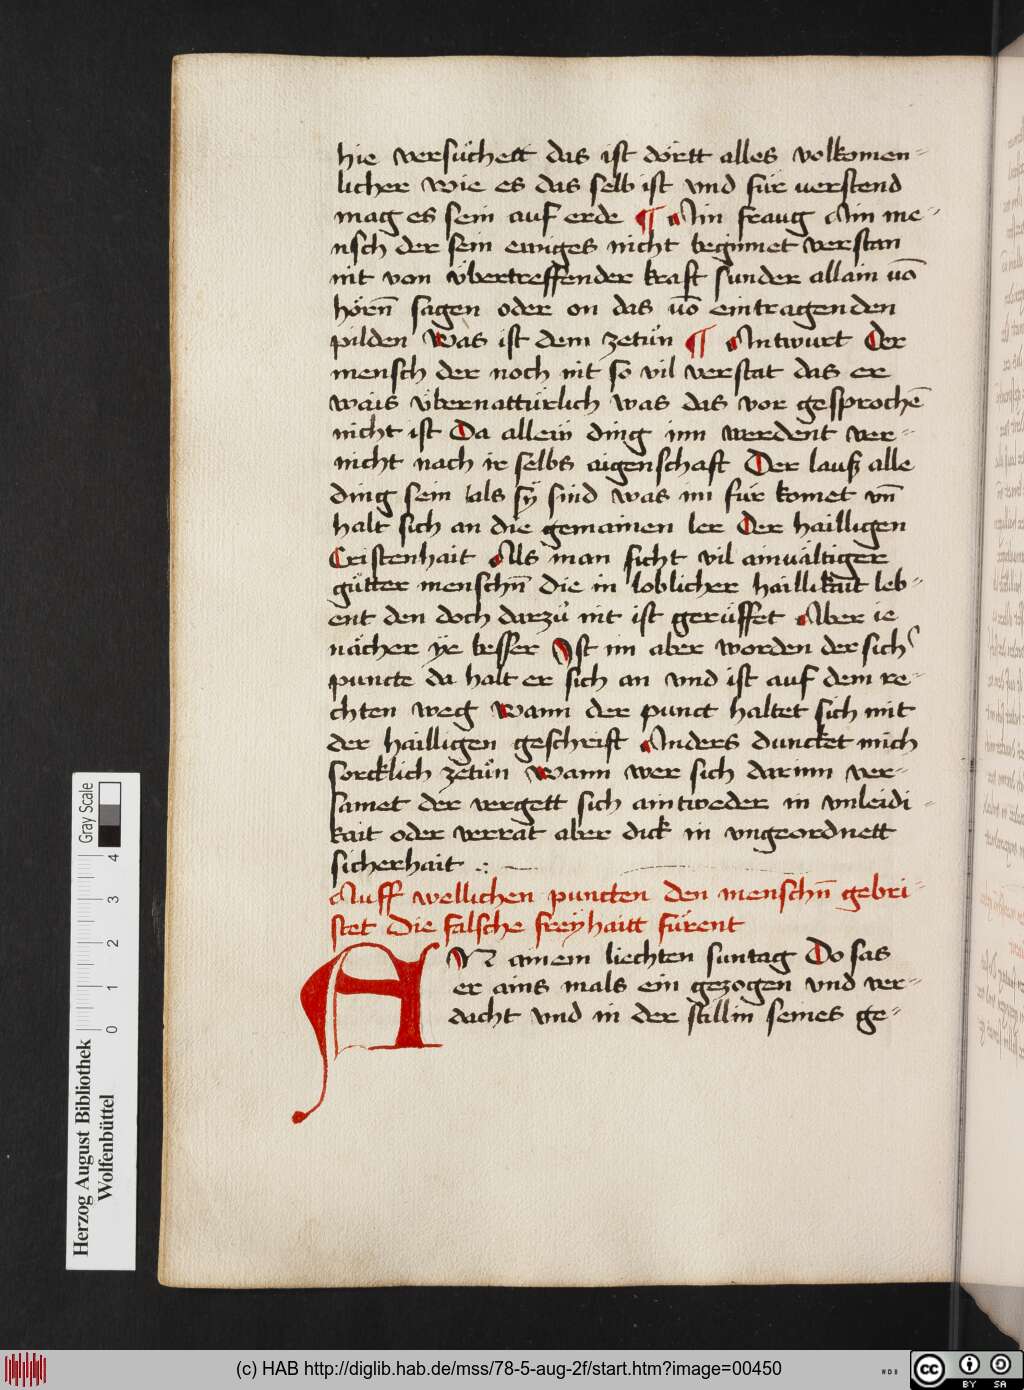 hie versüchett das ist dörtt alles volkomen-
licher wie es das selb ist vnd für verstend
mag es sein auf erde ¶ Ain fraug Ain me-
nsch der sein ewiges nicht beginnet verstan
nit von übertreffender kraft sunder allain uō
hörn̄ sagen oder on das uō eintragenden
pilden Was ist dem zetůn ¶ Antwurt Der
mensch der noch nit so vil verstat das er
wais übernattürlich was das vor gesprochē
nicht ist Da allein ding inn werdent ver-
nicht nach ir selbs aigenschaft Der lauß alle
ding sein als sÿ sind was im für komet vn̄
halt sich an die gemainen ler Der hailligen
Cristenhait Als man sicht vil ainualtiger
gütter menschn̄ die in loblicher haillikait leb-
ent den doch darzů nit ist gerüffet Aber ie
nächer ÿe besser Ist im aber worden der sich
puncte da halt er sich an vnd ist auf dem re-
chten weg Wann der punct haltet sich mit
der hailligen geschrift Anders duncket mich
sorcklich zetůn Wann wer sich darinn ver-
samet der vergett sich aintweder in vnleidi-
kait oder verrat aber dick in vngeordnett
sicherhait
Auff wellichen puncten den menschn̄ gebri-
stet Die falsche freÿhaitt fürent
AN ainem liechten suntag Do sas
er ains mals ein gezogen vnd ver-
dacht vnd in der stillin seines ge-
Gray Scale
4 3 2 1 0
Herzog August Bibliothek
Wolfenbüttel
(c) HAB http://diglib.hab.de/mss/78-5-aug-2f/start.htm?image=00450
WDB
cc BY SA